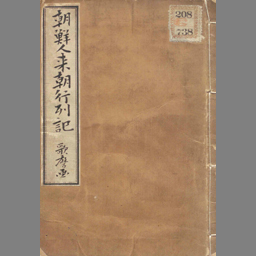 朝鮮人来朝行列記
歌麿画
208
738